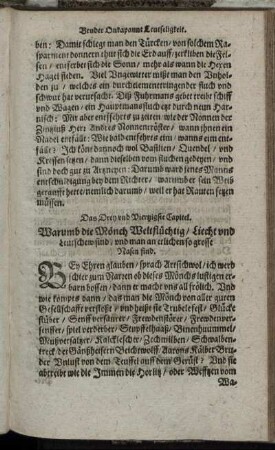 Bruder Onkapaunt Leutseligkeit.
ben: Damit schlegt man den Türcken, von solchem Ra-
spar
donnern thut sich die Erd auff, zerklüben die Fel-
sen, entferbet sich die Sonn, mehr als wann die Hexen
Hagel sieden. Viel Ungewitter mißt man den
den zu, welches ein durchtremmetringender fluch und
schwur hat verursacht. Ditz Fuhrmans gebet treibt schiff
und Wagen, ein Hauptmansfluch etzt durch neun Har-
nisch: Mit aber entfiehrs zu zeiten, wie der Nonnen der
Andres Nonnentröster, wann ihnen ein
Nadel entfält: Wie bald entfehrts eim, wanns eim ent-
fält: Ich köndt dannoch wol Basilien, Quendel, und
Kressen setzen, dann dieselben vom fluchen gedeyen, und
sind doch gut zur Artzney: Darumb ward jenes Mönnel
entschuldigung bey dem Richter, warumb er sein Weib
gerauft hette, nemlich darumb, weil er hat Rauten setzen
müssen.
Das Drey und Viertzigste Capitel.
Warumb die Mönch Weltflüchtig, Liecht und
leutschew sind, und man an etlichen so grosse
Nasen find.
BEy Ehren glauben, sprach Arsschwol, ich werd
schier zum Narren ob dieses Mönchs lustigen er-
barn bossen, dann er macht uns all frölich. Und
wie kompts dann, das man die Mönch von aller guten
Gesellschafft versteßt, und heißt sie Trubelefest, Glücks
stüber, Senffversäurer, Frewdenstörer, Frewdenver-
senffter, spiel verderber, Stupffelhaaß, Binenhummel,
Mußversaltzer, Kalckiescher, Zechwilben, Schwalben-
treck der Gänßheisern Beichtwolff, Aarons Kälber Bru-
der Unlust von dem Teuffel auff dem Gerüst, Und sie
abtreibt wie die Immen die Horlitz, oder Wefftzen vom
Wa-